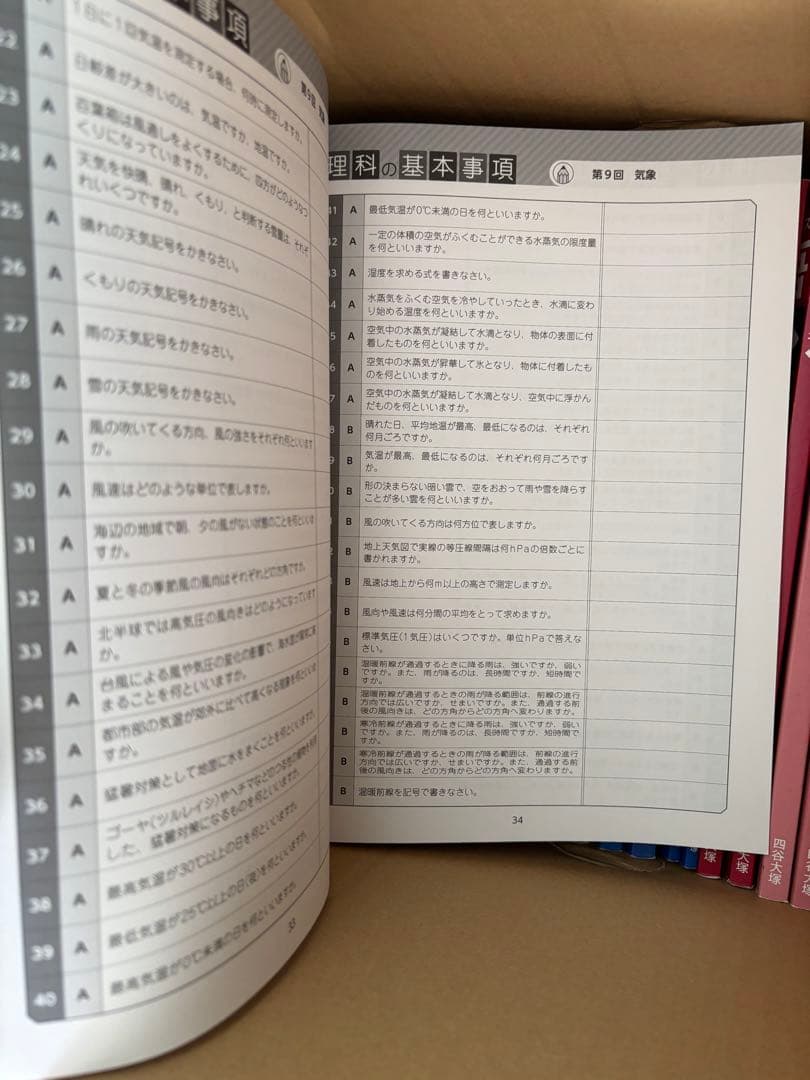 事項
第9回 気象
22 A 1日に1回気温を測定する場合、何時に測定しますか。
23 A 日較差が大きいのは、気温ですか、地温ですか。
24 A 百葉箱は風通しをよくするために、四方がどのようなつ
くりになっていますか。
25 A 天気を快晴、晴れ、くもり、と判断する雲量は、それぞ
れいくつですか。
26 A 晴れの天気記号をかきなさい。
27 A くもりの天気記号をかきなさい。
28 A 雨の天気記号をかきなさい。
29 A 雪の天気記号をかきなさい。
30 A 風の吹いてくる方向、風の強さをそれぞれ何といいます
か。
31 A 風速はどのような単位で表しますか。
32 A 海辺の地域で朝、夕の風がない状態のことを何といいま
すか。
33 A 夏と冬の季節風の風向はそれぞれどの方角ですか。
34 A 北半球では高気圧の風向きはどのようになっています
か。
35 A 台風による風や気圧の変化の影響で、海水面が異常に高
まることを何といいますか。
36 A 都市部の気温が郊外に比べて高くなる現象を何といいま
すか。
37 A 猛暑対策として地面に水をまくことを何といいますか。
38 A ゴーヤ(ツルレイシ)やヘチマなどのつる性の植物を利用
した、猛暑対策になるものを何といいますか。
39 A 最高気温が30℃以上の日を何といいますか。
40 A 最低気温が25℃以上の日(夜)を何といいますか。
A 最高気温が0℃未満の日を何といいますか。
33
理科の基本事項
第9回 気象
41 A 最低気温が0℃未満の日を何といいますか。
42 A 一定の体積の空気がふくむことができる水蒸気の限度量
を何といいますか。
3 A 湿度を求める式を書きなさい。
4 A 水蒸気をふくむ空気を冷やしていったとき、水滴に変わ
り始める温度を何といいますか。
5 A 空気中の水蒸気が凝結して水滴となり、物体の表面に付
着したものを何といいますか。
6 A 空気中の水蒸気が昇華して氷となり、物体に付着したも
のを何といいますか。
7 A 空気中の水蒸気が凝結して水滴となり、空気中に浮かん
だものを何といいますか。
8 B 晴れた日、平均地温が最高、最低になるのは、それぞれ
何月ごろですか。
9 B 気温が最高、最低になるのは、それぞれ何月ごろです
か。
0 B 形の決まらない暗い雲で、空をおおって雨や雪を降らす
ことが多い雲を何といいますか。
B 風の吹いてくる方向は何方位で表しますか。
B 地上天気図で実線の等圧線間隔は何hPaの倍数ごとに
書かれますか。
B 風速は地上から何m以上の高さで測定しますか。
B 風向や風速は何分間の平均をとって求めますか。
B 標準気圧(1気圧)はいくつですか。単位hPaで答えな
さい。
B 温暖前線が通過するときに降る雨は、強いですか、弱い
ですか。また、雨が降るのは、長時間ですか、短時間で
すか。
B 温暖前線が通過するときの雨が降る範囲は、前線の進行
方向では広いですか、せまいですか。また、通過する前
後の風向きは、どの方角からどの方角へ変わりますか。
B 寒冷前線が通過するときに降る雨は、強いですか、弱い
ですか。また、雨が降るのは、長時間ですか、短時間で
すか。
B 寒冷前線が通過するときの雨が降る範囲は、前線の進行
方向では広いですか、せまいですか。また、通過する前
後の風向きは、どの方角からどの方角へ変わりますか。
B 温暖前線を記号で書きなさい。
34
大塚
大塚
四谷大塚
四谷大塚